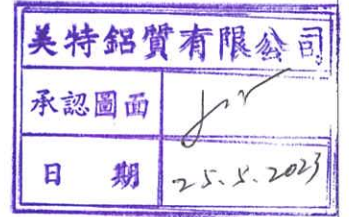 美特鋁質有限公司
承認圖面
日 期 25.5.2023